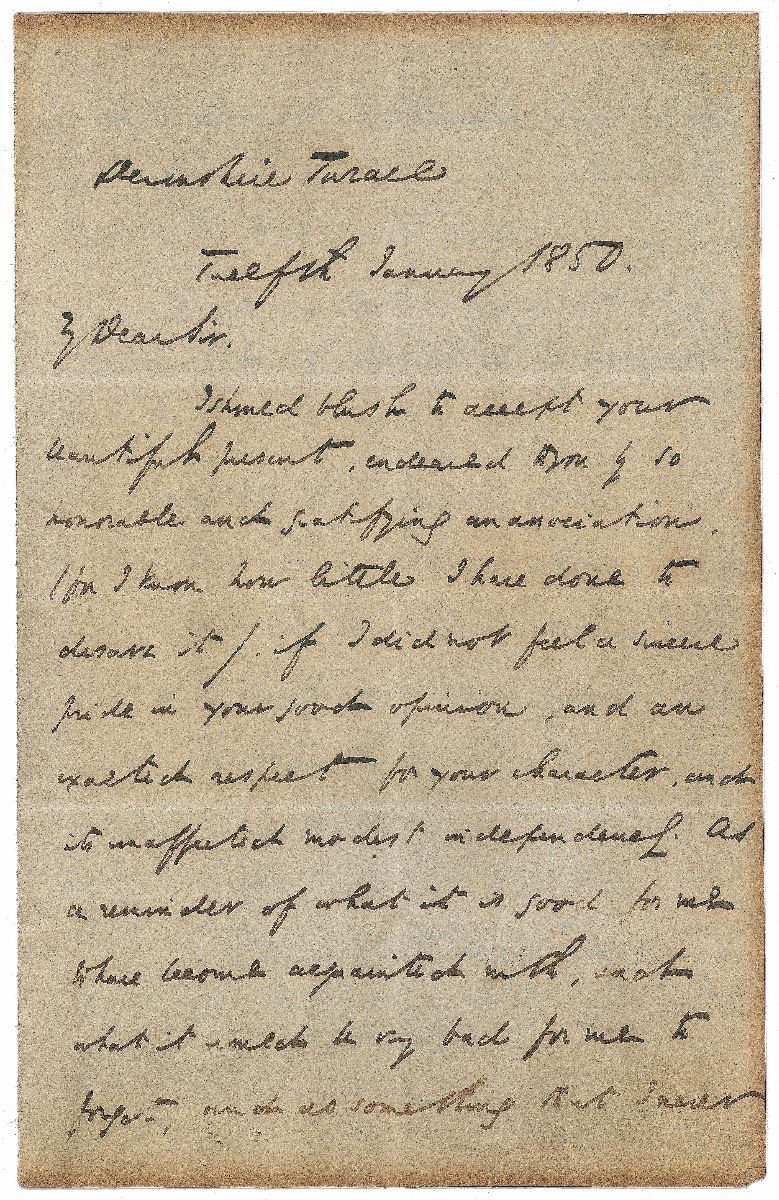 Devonshire Terrace
Twelfth January 1850.
My Dear Sir.
I should blush to accept your
beautiful present, endeared to you by so
honorable and gratifying an association,
(for I know how little I have done to
deserve it). if I did not feel a sincere
pride in your good opinion, and an
exalted respect for your character, and
its unaffected modest independence. As
a reminder of what it is good for me
to have become acquainted with, and
what it would be very bad for me to
forget, and as something that I never